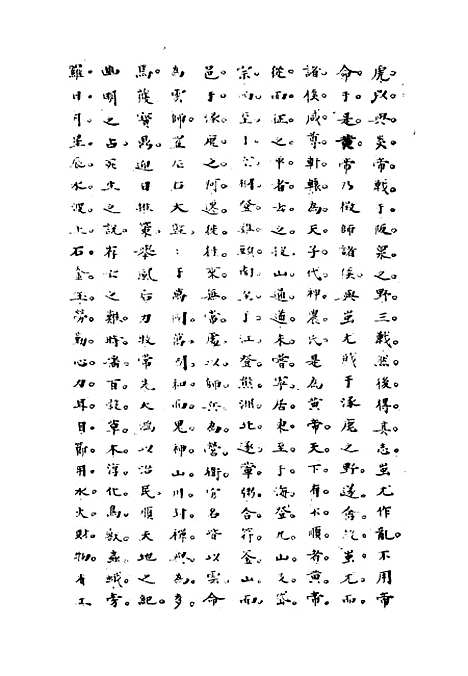 虎。以與炎帝戰于阪泉之野。三戰。然後得其志。蚩尤作亂。不用帝
命。于是黃帝乃徵師諸侯。與蚩尤戰于涿鹿之野。遂禽殺蚩尤。而
諸侯咸尊軒轅為天子。代神農氏。是為黃帝。天下有不順者。黃帝
從而征之。平者去之。披山通道。未嘗寧居。東至于海。登丸山。及岱
宗。西至于空桐。登雞頭。南至于江。登熊湘。北逐葷粥。合符釜山。而
邑于涿鹿之阿。遷徙往來無常處。以師兵為營衛。官名皆以雲命
為雲師。置左右大監。監于萬國。萬國和。而鬼神山川封禪與為多。
馬。獲寶鼎。迎日推筴。舉風后力牧常先大鴻以治民。順天地之紀。
幽明之占。死生之說。存亡之難。時播百穀草木。淳化鳥獸蟲蛾。旁
羅日月星辰水波土石金玉。勞勤心力耳目。節用水火財物。有土